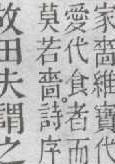 家嗇維寶代
愛代食者而
莫若嗇。詩序
故田夫謂之